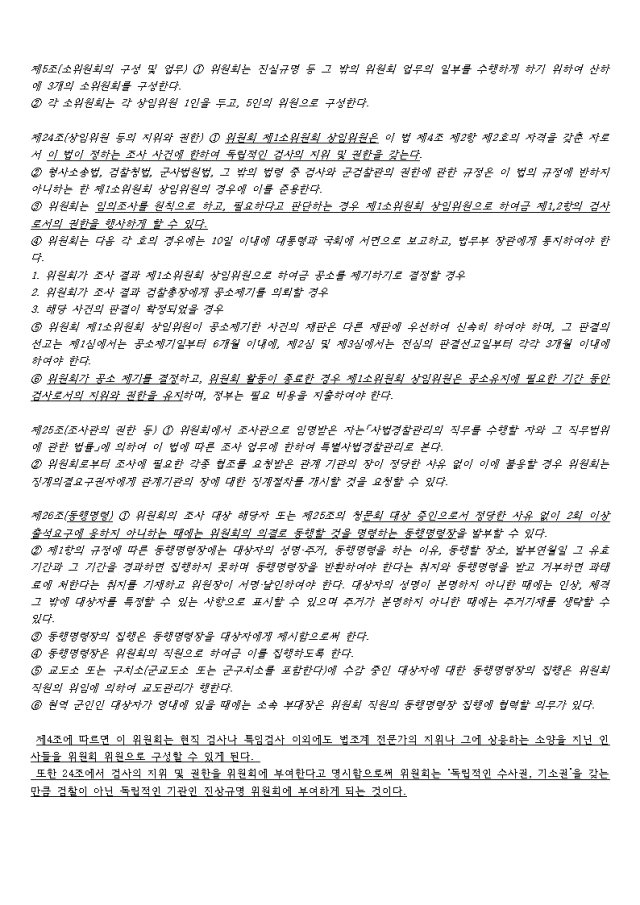 제5조(소위원회의 구성 및 업무) ① 위원회는 진실규명 등 그 밖의 위원회 업무의 일부를 수행하게 하기 위하여 산하
에 3개의 소위원회를 구성한다.
② 각 소위원회는 각 상임위원 1인을 두고, 5인의 위원으로 구성한다.
제24조(상임위원 등의 지위와 권한) ① 위원회 제1소위원회 상임위원은 이 법 제4조 제2항 제2호의 자격을 갖춘 자로
서 이 법이 정하는 조사 사건에 한하여 독립적인 검사의 지위 및 권한을 갖는다.
② 형사소송법, 검찰청법, 군사법원법, 그 밖의 법령 중 검사와 군검찰관의 권한에 관한 규정은 이 법의 규정에 반하지
아니하는 한 제1소위원회 상임위원의 경우에 이를 준용한다.
③ 위원회는 임의조사를 원칙으로 하고, 필요하다고 판단하는 경우 제1소위원회 상임위원으로 하여금 제1,2항의 검사
로서의 권한을 행사하게 할 수 있다.
④ 위원회는 다음 각 호의 경우에는 10일 이내에 대통령과 국회에 서면으로 보고하고, 법무부 장관에게 통지하여야 한
다.
1. 위원회가 조사 결과 제1소위원회 상임위원으로 하여금 공소를 제기하기로 결정할 경우
2. 위원회가 조사 결과 검찰총장에게 공소제기를 의뢰할 경우
3. 해당 사건의 판결이 확정되었을 경우
⑤ 위원회 제1소위원회 상임위원이 공소제기한 사건의 재판은 다른 재판에 우선하여 신속히 하여야 하며, 그 판결의
선고는 제1심에서는 공소제기일부터 6개월 이내에, 제2심 및 제3심에서는 전심의 판결선고일부터 각각 3개월 이내에
하여야 한다.
⑥ 위원회가 공소 제기를 결정하고, 위원회 활동이 종료한 경우 제1소위원회 상임위원은 공소유지에 필요한 기간 동안
검사로서의 지위와 권한을 유지하며, 정부는 필요 비용을 지출하여야 한다.
제25조(조사관의 권한 등) ① 위원회에서 조사관으로 임명받은 자는「사법경찰관리의 직무를 수행할 자와 그 직무범위
에 관한 법률」에 의하여 이 법에 따른 조사 업무에 한하여 특별사법경찰관리로 본다.
② 위원회로부터 조사에 필요한 각종 협조를 요청받은 관계 기관의 장이 정당한 사유 없이 이에 불응할 경우 위원회는
징계의결요구권자에게 관계기관의 장에 대한 징계절차를 개시할 것을 요청할 수 있다.
제26조(동행명령) ① 위원회의 조사 대상 해당자 또는 제25조의 청문회 대상 증인으로서 정당한 사유 없이 2회 이상
출석요구에 응하지 아니하는 때에는 위원회의 의결로 동행할 것을 명령하는 동행명령장을 발부할 수 있다.
② 제1항의 규정에 따른 동행명령장에는 대상자의 성명·주거, 동행명령을 하는 이유, 동행할 장소, 발부연월일 그 유효
기간과 그 기간을 경과하면 집행하지 못하며 동행명령장을 반환하여야 한다는 취지와 동행명령을 받고 거부하면 과태
료에 처한다는 취지를 기재하고 위원장이 서명·날인하여야 한다. 대상자의 성명이 분명하지 아니한 때에는 인상, 체격
그 밖에 대상자를 특정할 수 있는 사항으로 표시할 수 있으며 주거가 분명하지 아니한 때에는 주거기재를 생략할 수
있다.
③ 동행명령장의 집행은 동행명령장을 대상자에게 제시함으로써 한다.
④ 동행명령장은 위원회의 직원으로 하여금 이를 집행하도록 한다.
⑤ 교도소 또는 구치소(군교도소 또는 군구치소를 포함한다)에 수감 중인 대상자에 대한 동행명령장의 집행은 위원회
직원의 위임에 의하여 교도관리가 행한다.
⑥ 현역 군인인 대상자가 영내에 있을 때에는 소속 부대장은 위원회 직원의 동행명령장 집행에 협력할 의무가 있다.
제4조에 따르면 이 위원회는 현직 검사나 특임검사 이외에도 법조계 전문가의 지위나 그에 상응하는 소양을 지닌 인
사들을 위원회 위원으로 구성할 수 있게 된다.
또한 24조에서 검사의 지위 및 권한을 위원회에 부여한다고 명시함으로써 위원회는 '독립적인 수사권, 기소권'을 갖는
만큼 검찰이 아닌 독립적인 기관인 진상규명 위원회에 부여하게 되는 것이다.